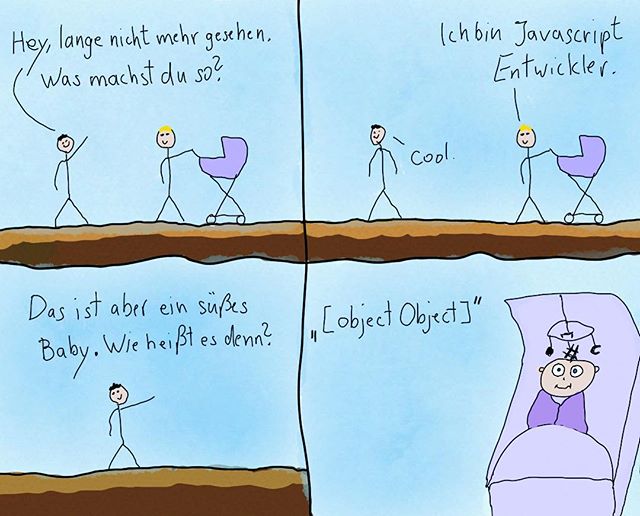 Hey, lange nicht mehr gesehen.
Was machst du so?
Ich bin Javascript
Entwickler.
cool.
Das ist aber ein süßes
Baby. Wie heißt es denn?
„[object Object]“